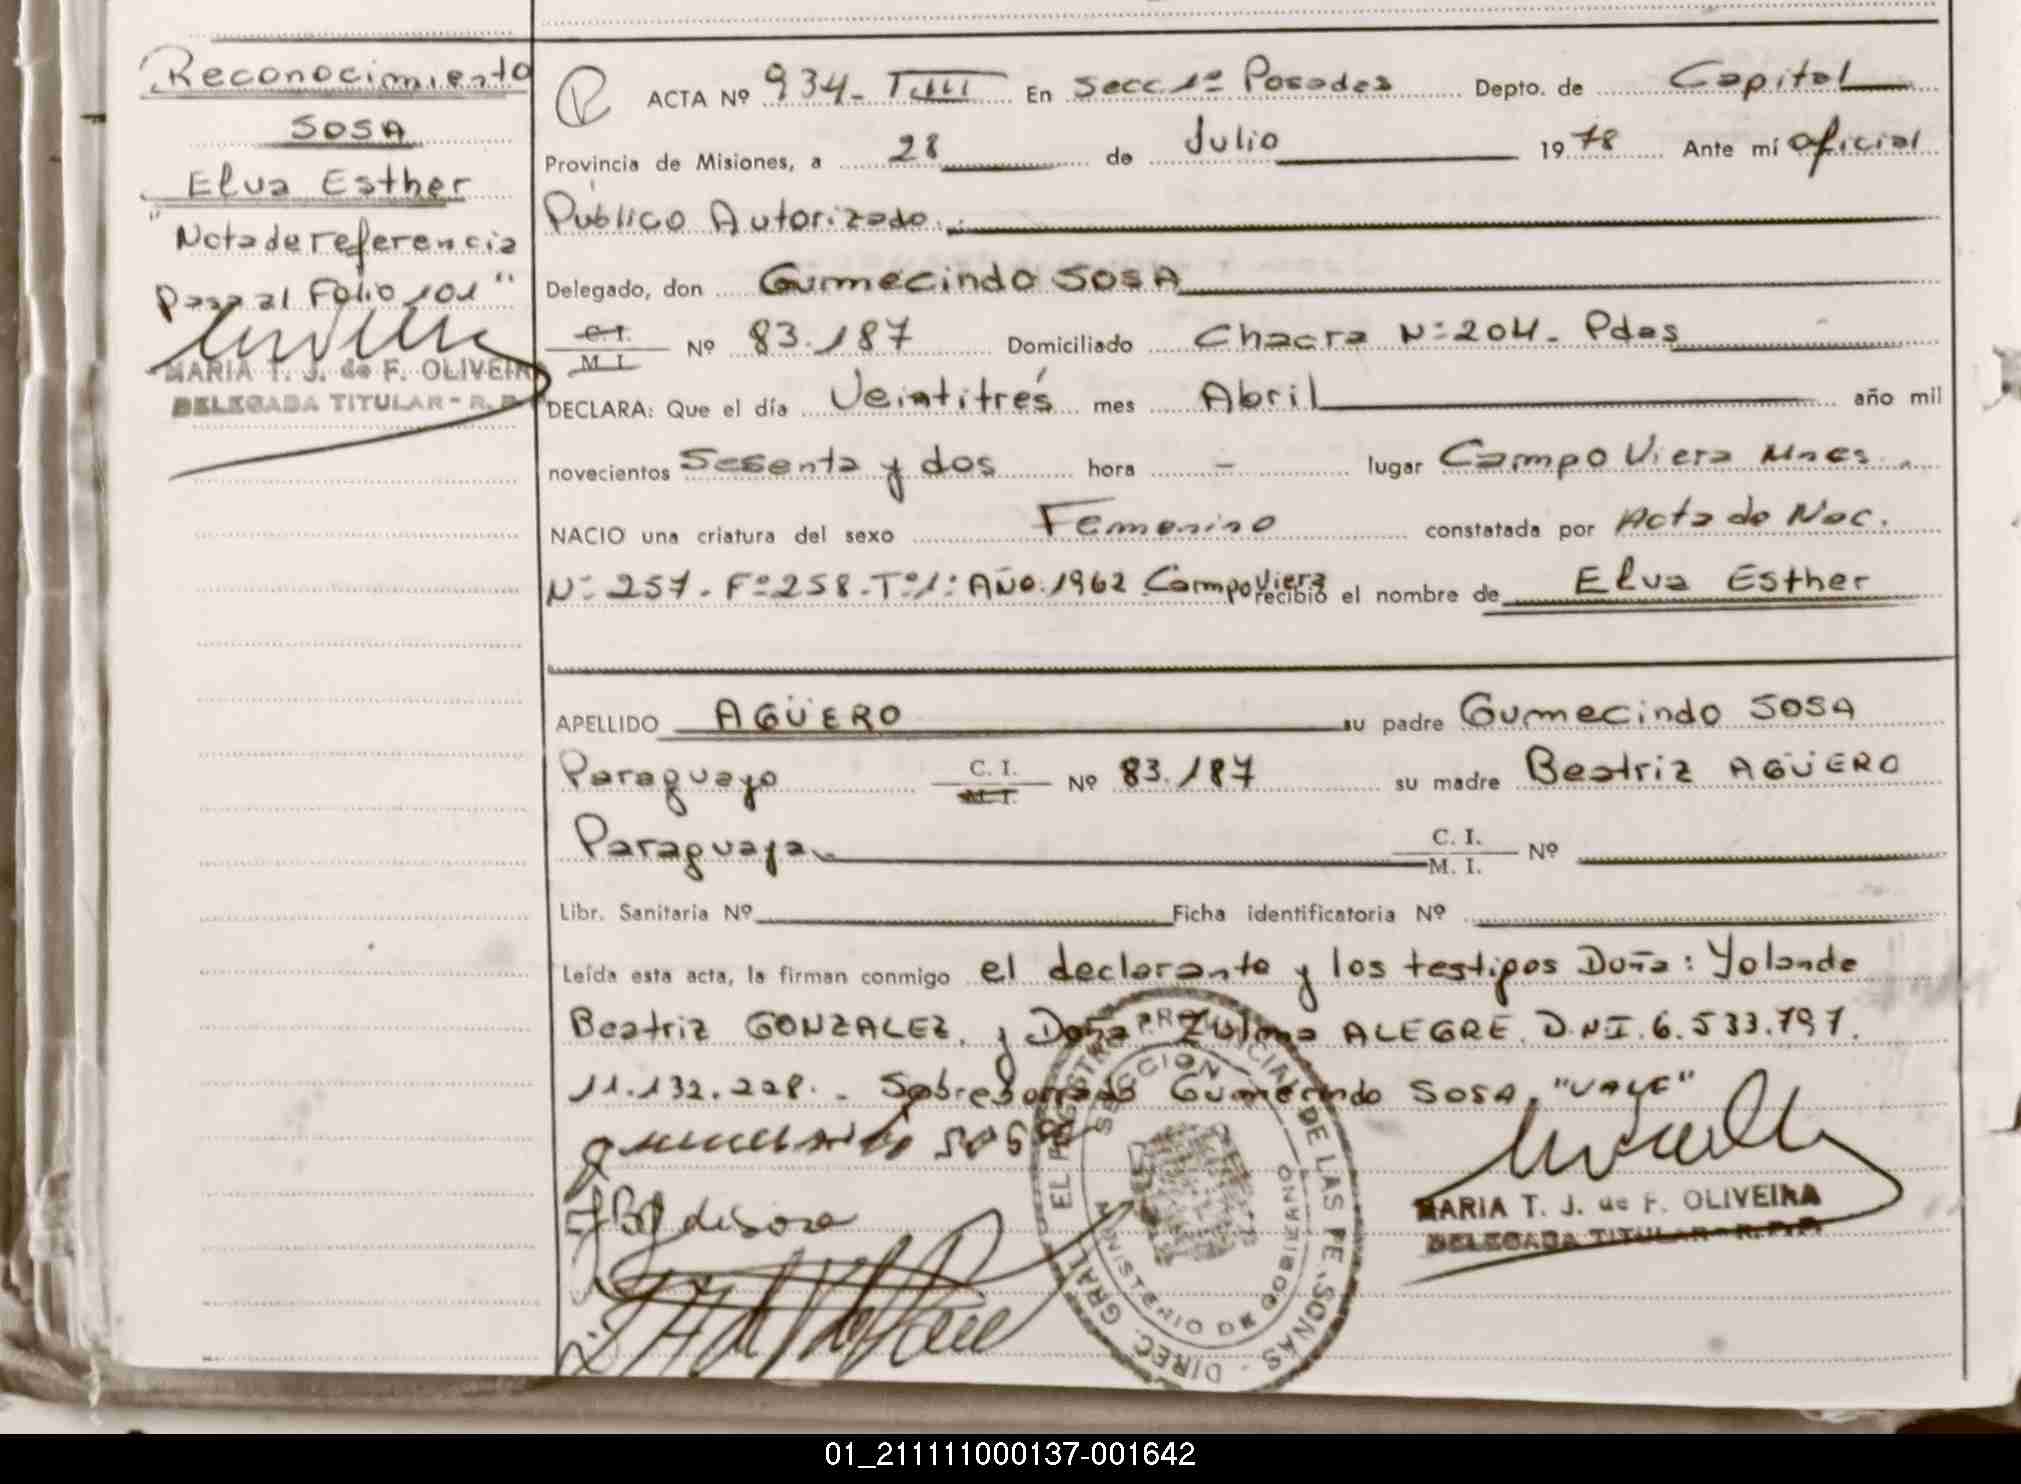 Reconocimiento
SOSA
Elva Esther
"Nota de referencia
Pasa al Folio 101"
MARIA T. J. de F. OLIVEIRA
DELEGADA TITULAR - R. P.
R ACTA Nº 934- TIII En Secc 1ª Posadas Depto. de Capital
Provincia de Misiones, a 28 de Julio 1978 Ante mí oficial
Público Autorizado.
Delegado, don Gumecindo SOSA
C. I. M. I. Nº 83.187 Domiciliado Chacra Nº 204- Pdas
DECLARA: Que el día Veintitrés mes Abril año mil
novecientos Sesenta y dos hora - lugar Campo Viera Mnes.
NACIO una criatura del sexo Femenino constatada por Acta de Nac.
Nº 257. Fº 258. Tº 1º AÑO. 1962 Campo Viera recibió el nombre de Elva Esther
APELLIDO AGÜERO su padre Gumecindo SOSA
Paraguayo C. I. M. I. Nº 83.187 su madre Beatriz AGÜERO
Paraguaya C. I. M. I. Nº
Libr. Sanitaria Nº Ficha identificatoria Nº
Leída esta acta, la firman conmigo el declarante y los testigos Doña: Yolanda
Beatriz GONZALEZ. y Doña Zulma ALEGRE. D.N.I. 6.533.797.
11.132.228. - Sobreborrado Gumecindo SOSA. "VALE"
gumecindo sosa
de Sosa
MARIA T. J. de F. OLIVEIRA
DELEGADA TITULAR - R.P.P.
DIREC. GRAL. DEL REGISTRO PROVINCIAL DE LAS PERSONAS
SECCION
MINISTERIO DE GOBIERNO
01_211111000137-001642